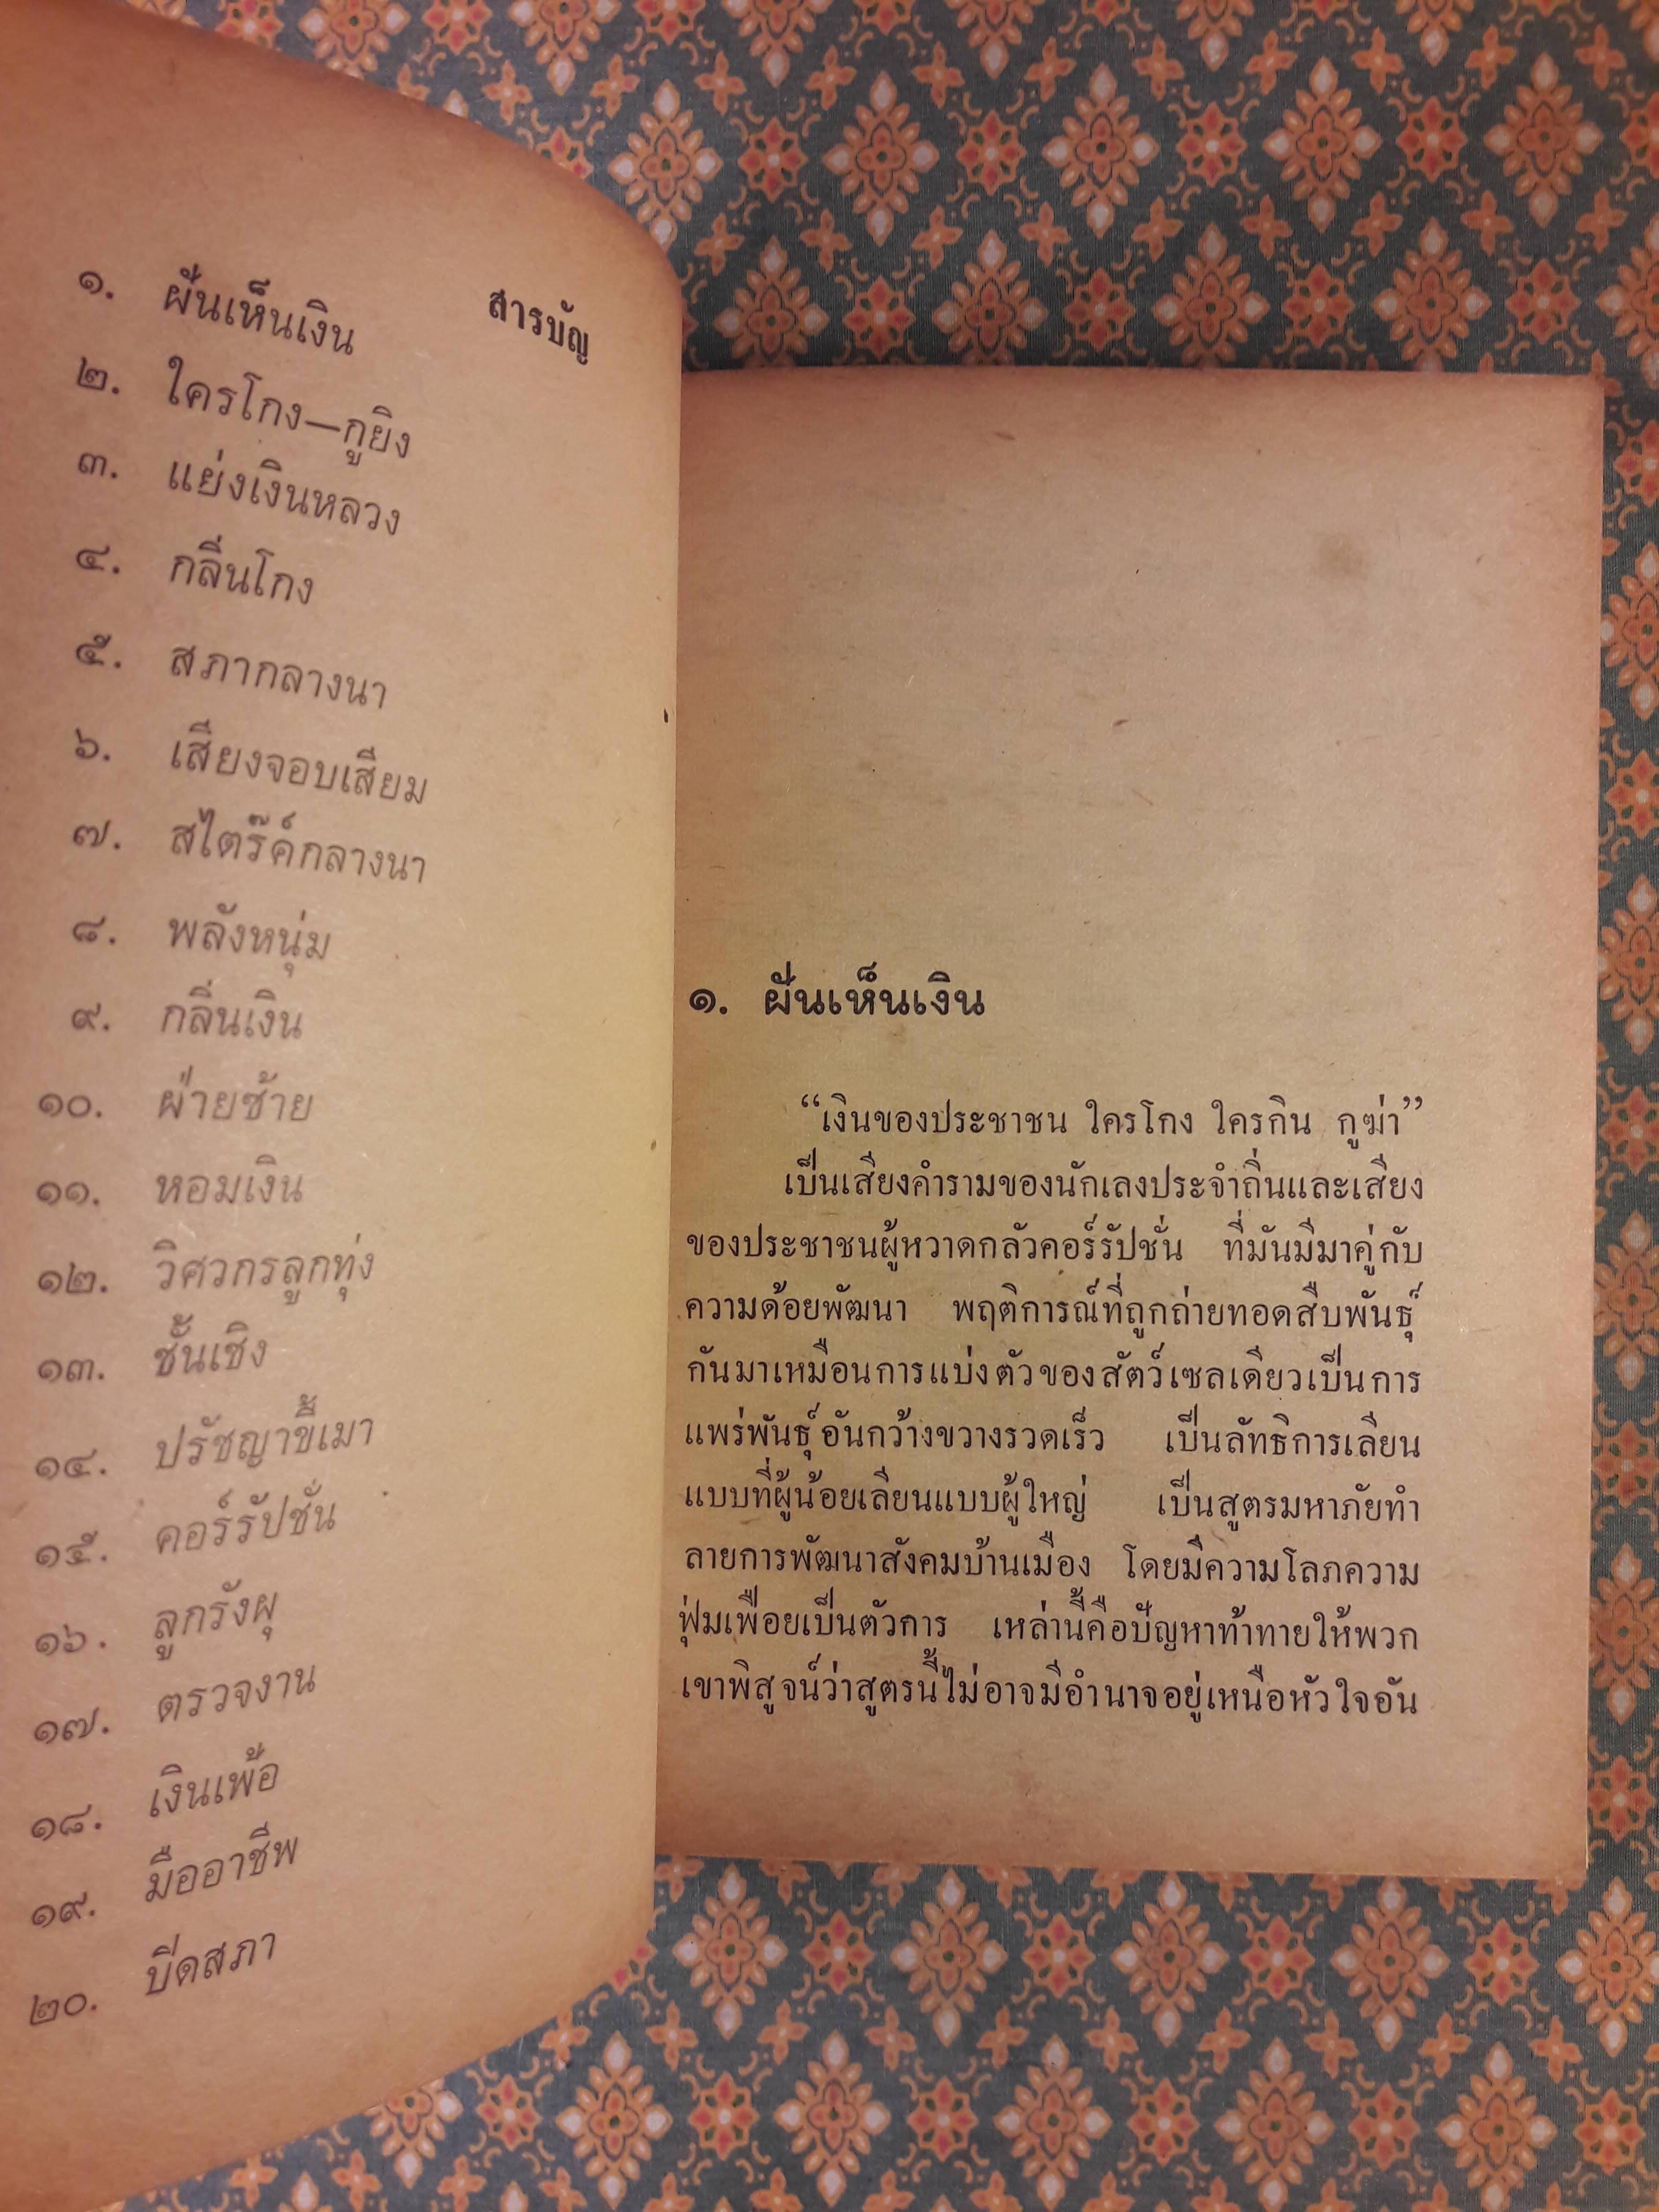 สารบัญ
๑. ฝันเห็นเงิน
๒. ใครโกง—กูยิง
๓. แย่งเงินหลวง
๔. กลิ่นโกง
๕. สภากลางนา
๖. เสียงจอบเสียม
๗. สไตร๊ค์กลางนา
๘. พลังหนุ่ม
๙. กลิ่นเงิน
๑๐. ฝ่ายซ้าย
๑๑. หอมเงิน
๑๒. วิศวกรลูกทุ่ง
๑๓. ชั้นเชิง
๑๔. ปรัชญาขี้เมา
๑๕. คอร์รัปชั่น
๑๖. ลูกรังผุ
๑๗. ตรวจงาน
๑๘. เงินเพ้อ
๑๙. มืออาชีพ
๒๐. ปิดสภา
๑. ฝันเห็นเงิน
“เงินของประชาชน ใครโกง ใครกิน กูฆ่า”
เป็นเสียงคำรามของนักเลงประจำถิ่นและเสียง
ของประชาชนผู้หวาดกลัวคอร์รัปชั่น ที่มันมีมาคู่กับ
ความด้อยพัฒนา พฤติการณ์ที่ถูกถ่ายทอดสืบพันธุ์
กันมาเหมือนการแบ่งตัวของสัตว์เซลเดียวเป็นการ
แพร่พันธุ์อันกว้างขวางรวดเร็ว เป็นลัทธิการเลียน
แบบที่ผู้น้อยเลียนแบบผู้ใหญ่ เป็นสูตรมหาภัยทำ
ลายการพัฒนาสังคมบ้านเมือง โดยมีความโลภความ
ฟุ่มเฟือยเป็นตัวการ เหล่านี้คือปัญหาท้าทายให้พวก
เขาพิสูจน์ว่าสูตรนี้ไม่อาจมีอำนาจอยู่เหนือหัวใจอัน